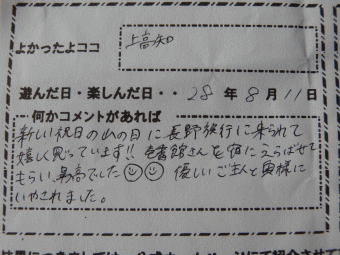 よかったよココ
上高知
遊んだ日・楽しんだ日・・28年8月11日
何かコメントがあれば
新しい祝日の山の日に長野旅行に来られて
嬉しく思っています!! 壱番館さんを宿にえらばせて
もらい、最高でした☺☺ 優しいご主人と奥様に
いやされました。